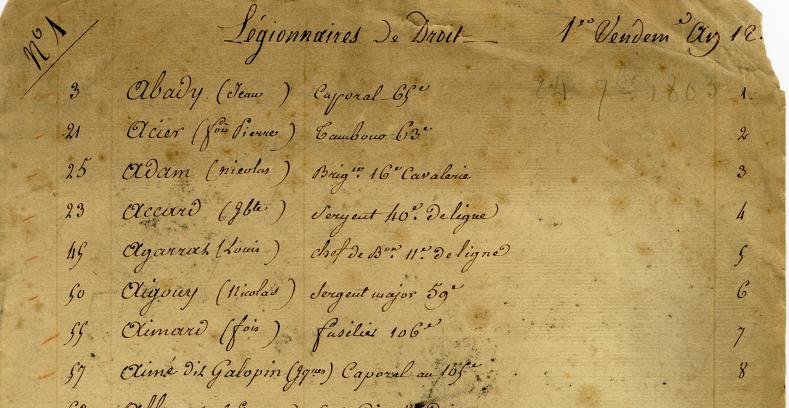 N° 1
Légionnaires de Droit 1er Vendem.e An 12.
24 7bre 1803
3 Abady (Jean) Caporal 65e 1.
21 Acier (fois Pierre) Tambour 63e 2
25 Adam (nicolas) Brig.er 16e Cavalerie 3
23 Accard (Jbte) Sergent 40e de ligne 4
45 Agarrat (Louis) chef de B.on 11e de ligne 5
50 Aigouy (Nicolas) Sergent major 59e 6
55 Aimard (fois) fusilier 106e 7
57 Aimé dit Galopin (Jques) Caporal au 105e 8